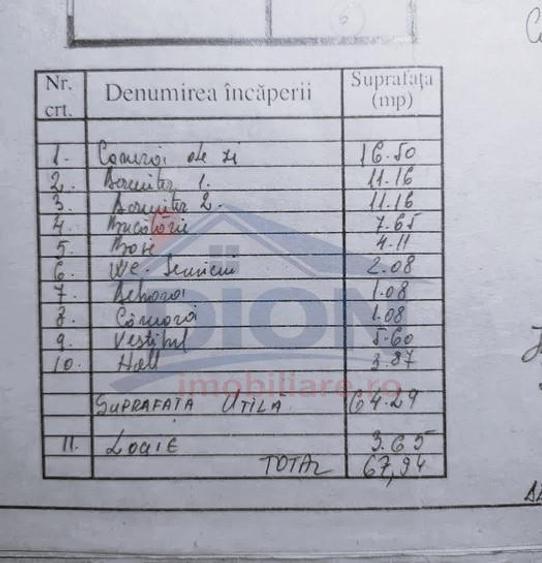 Nr. crt. Denumirea încăperii Suprafaţa (mp)
1. Camera de zi 16.50
2. Dormitor 1. 11.16
3. Dormitor 2. 11.16
4. Bucătărie 7.65
5. Baie 4.11
6. WC. Serviciu 2.08
7. Debara 1.08
8. Cămară 1.08
9. Vestibul 5.60
10. Hall 3.87
DION
imobiliare.ro
SUPRAFATA UTILA 64.29
11. LOGIE 3.65
TOTAL 67,94